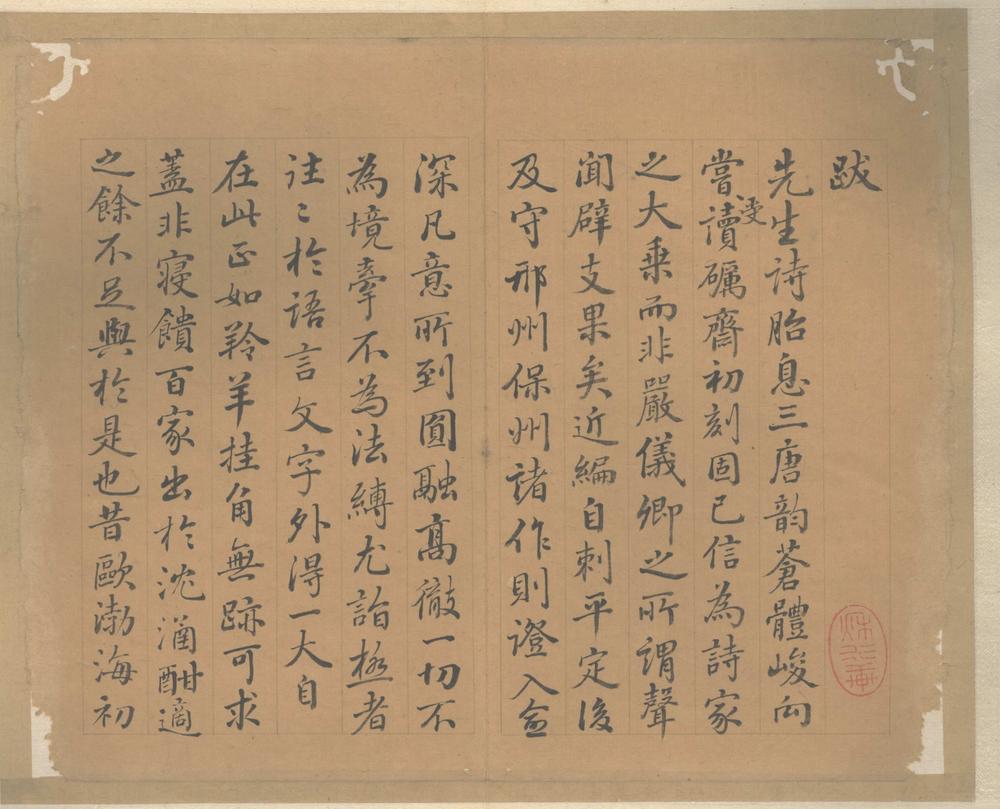 跋
先生詩胎息三唐韵蒼體峻向
嘗受讀礪齋初刻固已信為詩家
之大乗而非嚴儀卿之所謂聲
聞辟支果矣近編自刺平定後
及守邢州保州諸作則證入愈
深凡意所到圓融髙徹一切不
為境牽不為法縛尤詣極者
往〻於語言文字外得一大自
在此正如羚羊挂角無跡可求
蓋非寢饋百家出於沈湎酣適
之餘不足與於是也昔歐渤海初